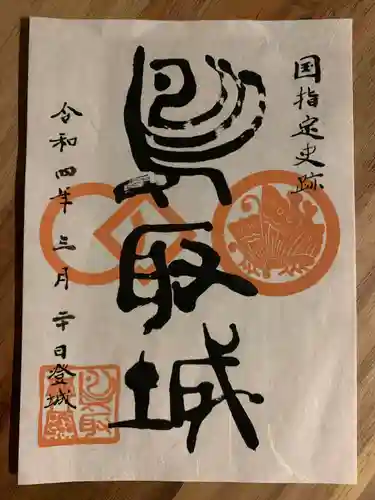 国指定史跡
鳥取城
令和四年三月二十日登城